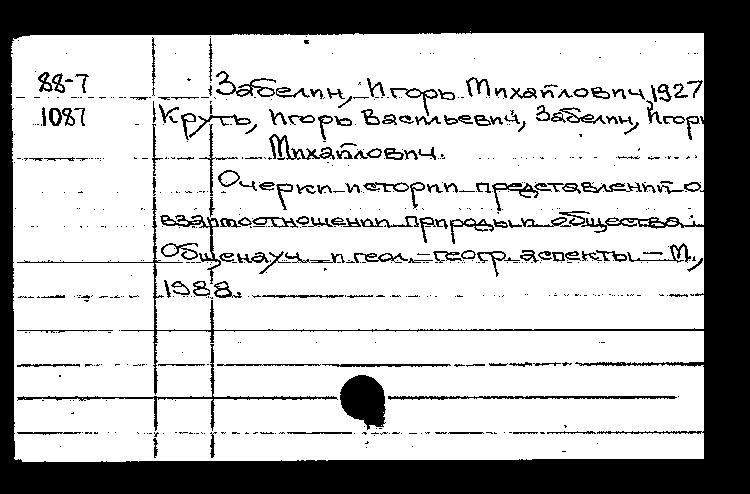 88-7 Забелин, Игорь Михайлович, 1927
1087 Круть, Игорь Васильевич, Забелин, Игорь
Михайлович.
Очерки истории представлений о
взаимоотношении природы и общества:
Общенауч. и геол.-геогр. аспекты. - М.,
1988.